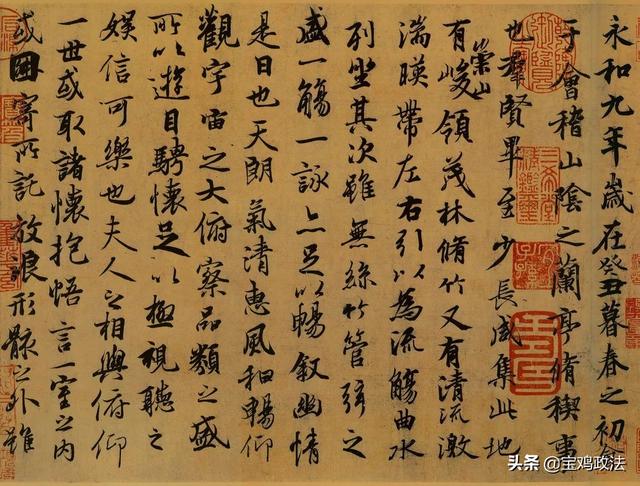 永和九年歲在癸丑暮春之初會
于會稽山陰之蘭亭脩稧事
也羣賢畢至少長咸集此地
有崇山峻領茂林脩竹又有清流激
湍暎帶左右引以為流觴曲水
列坐其次雖無絲竹管弦之
盛一觴一詠亦足以暢敘幽情
是日也天朗氣清惠風和暢仰
觀宇宙之大俯察品類之盛
所以遊目騁懷足以極視聽之
娛信可樂也夫人之相與俯仰
一世或取諸懷抱悟言一室之內
或因寄所託放浪形骸之外雖
头条 @宝鸡政法